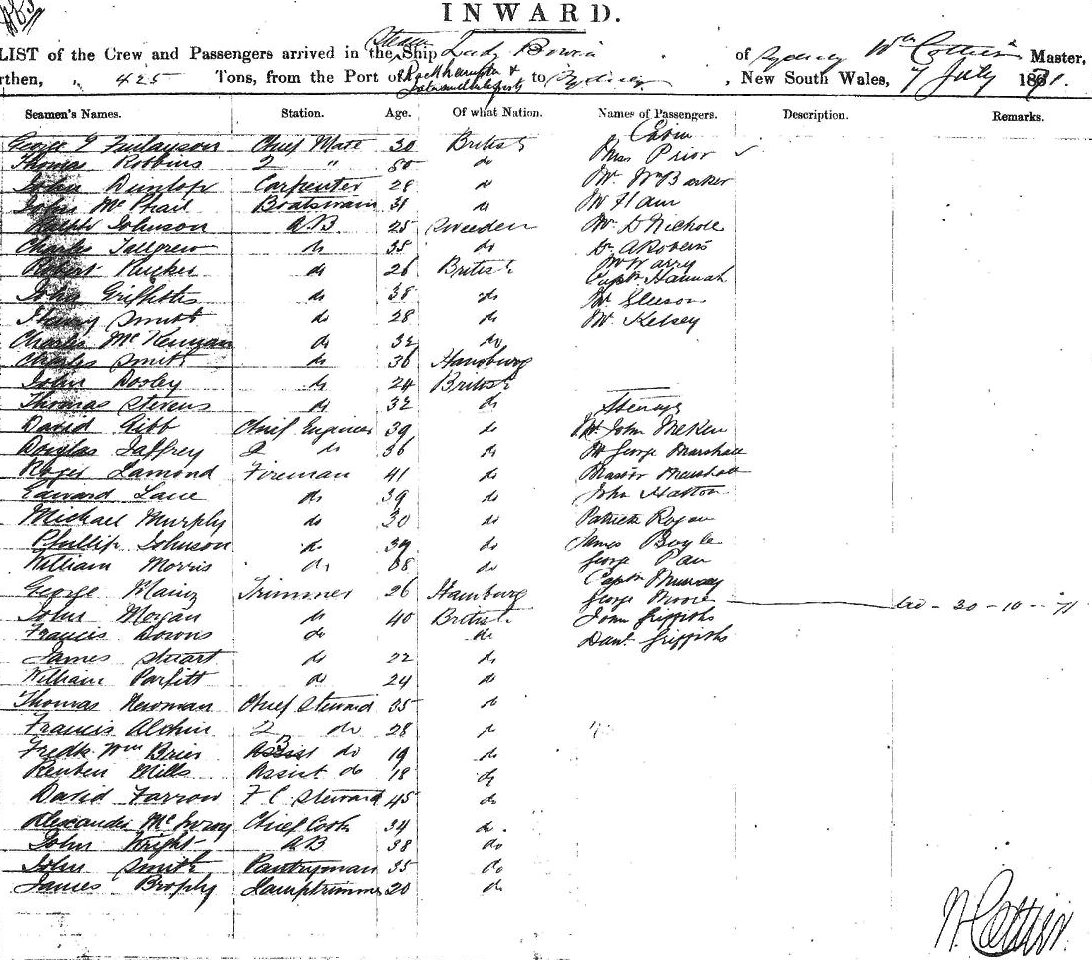 INWARD.
LIST of the Crew and Passengers arrived in the Steam Ship Lady Bowen of Sydney Wm Cottier Master,
rthen, 425 Tons, from the Port of Rockhampton & to Sydney, New South Wales, 7 July 1871.
Seamen's Names. Station. Age. Of what Nation. Names of Passengers. Description. Remarks.
Cabin
George F Finlayson Chief Mate 30 British Mrs Prior
Thomas Robbins 2 " 50 do Mr Wm Barker
John Dunlop Carpenter 28 do Mr
John McPhail Boatswain 31 do Mr D Nichole
Ralph Johnson A.B. 25 Sweeden
Charles Tallgrew do 35 do
Robert do 26 British Captn Hannah
John Griffiths do 38 do Mr Gleeson
Henry Smith do 28 do Mr Kelsey
Charles do 32 do
Charles Smith do 36 Hamburg
John do 24 British
Thomas Stevens do 32 do Steerage
David Gibb Chief Engineer 39 do Mr John
Douglas Jaffrey 2 do 36 do Mr George Marshall
Roger Lamond Fireman 41 do Master Marshall
Edward Lane do 39 do John Hatton
Michael Murphy do 30 do Patrick
Phillip Johnson do 39 do James Boyle
William Morris do do George
George Trimmer 26 Hamburg Captn Murray
George Moore 20-10-71
John Morgan do 40 British John Griffiths
Francis Downs do do Danl Griffiths
James Stuart do 22 do
William Parfitt do 24 do
Thomas Newman Chief Steward 35 do
Francis Alchin 2 do 28 do
Fredk Wm Brier 3 do 19 do
Reuben Mills Assist do 18 do
David Farrow F C Steward 45 do
Alexander Chief Cook 34 do
John Wright AB 38 do
John Smith Pantryman 35 do
James Brophy Lamptrimmer 20 do
Cottier